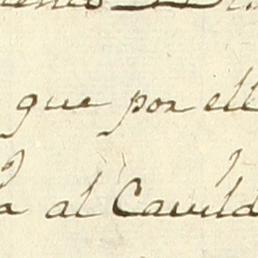 que por ell
a al Cavild